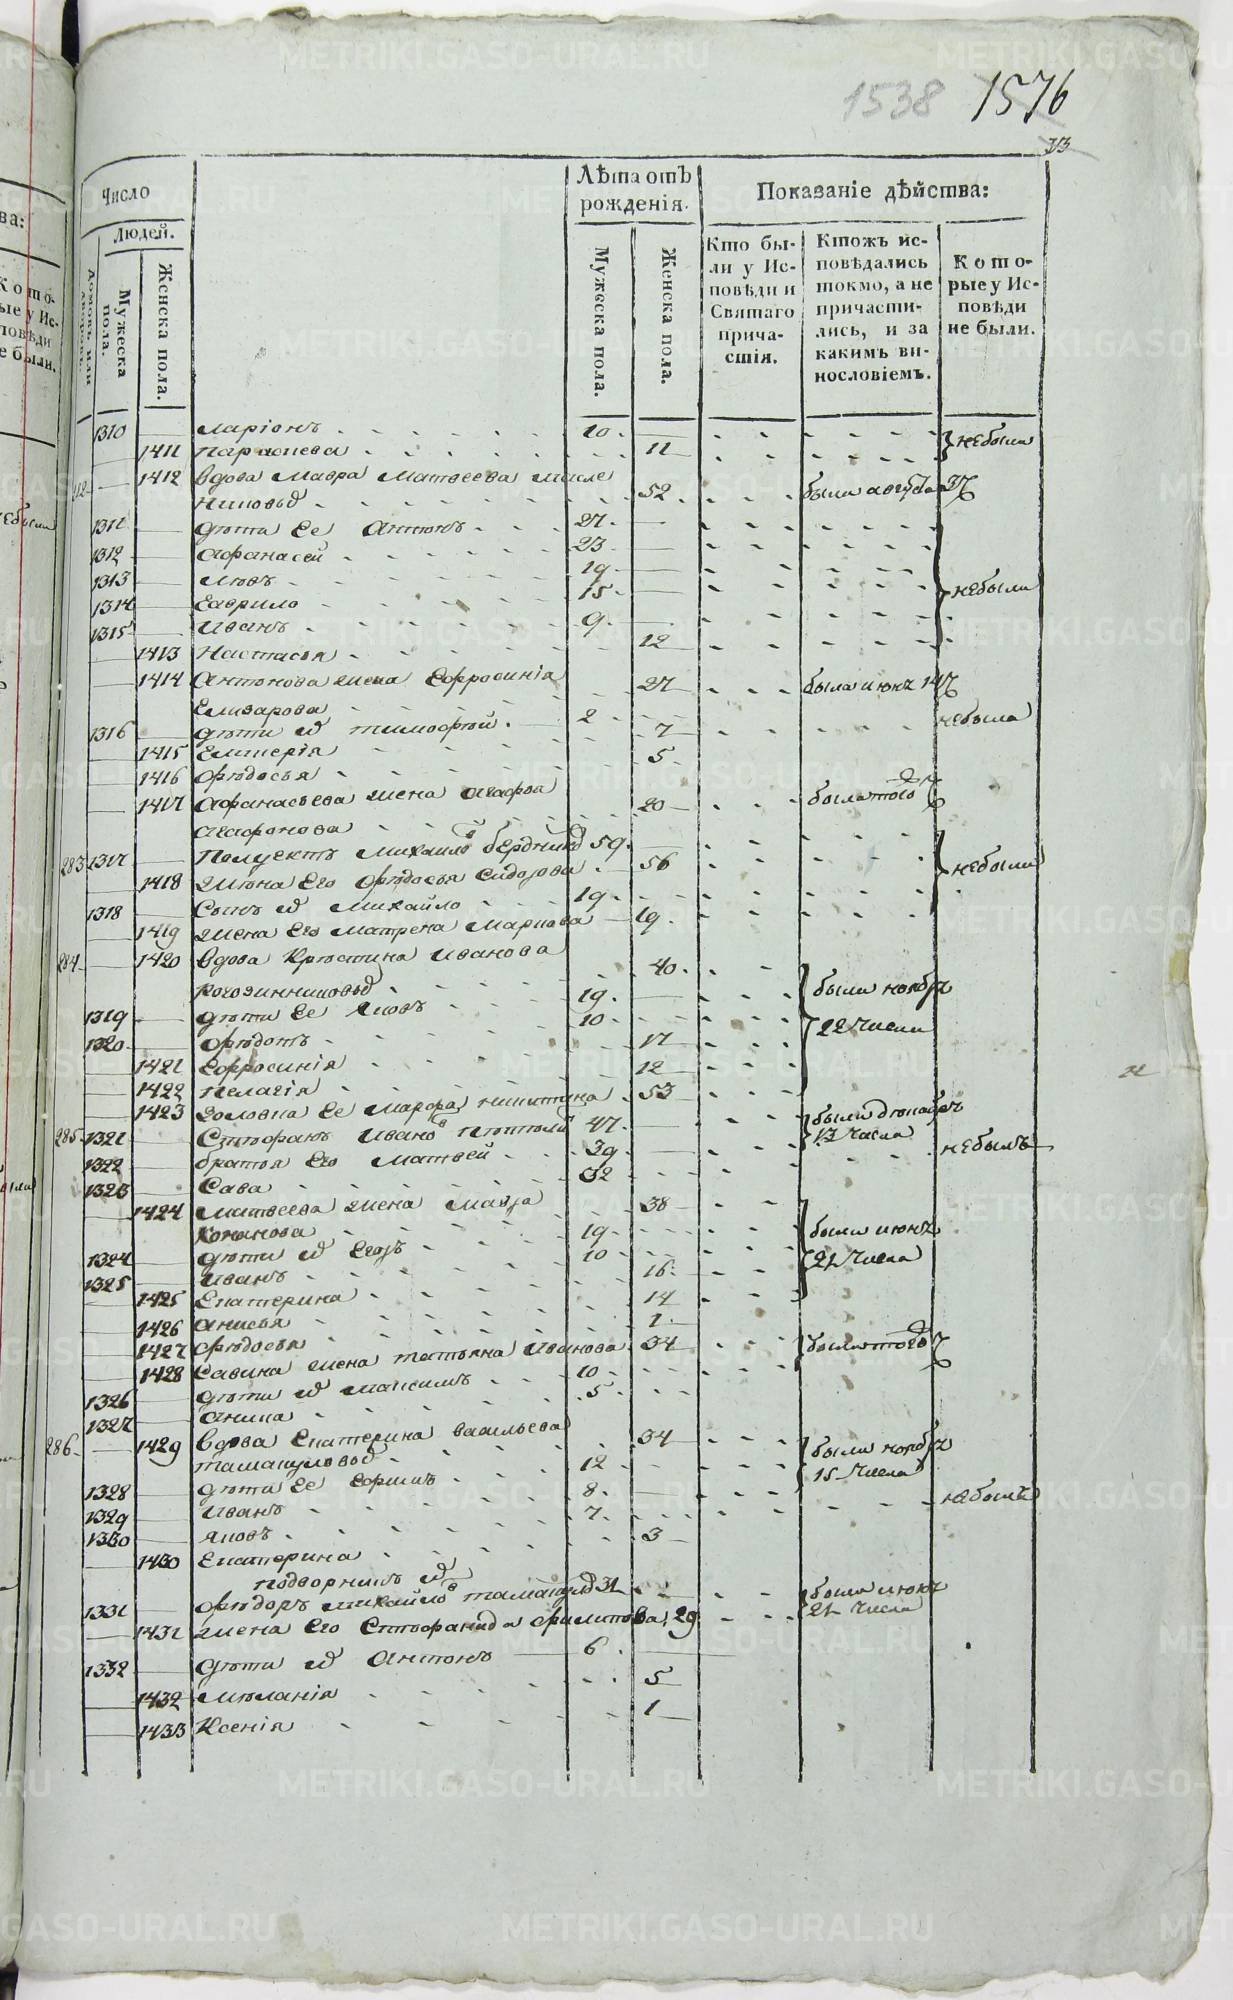 1538 1576
Число
Людей.
Домовъ или дворовъ.
Мужеска пола.
Женска пола.
Лѣта отъ рожденія.
Мужеска пола.
Женска пола.
Показаніе дѣйства:
Кто были у Исповѣди и Святаго причастія.
Ктожъ исповѣдались токмо, а не причастились, и за какимъ винословіемъ.
Которые у Исповѣди не были.
1310 Ларіонъ 10
1411 Параскева 11 небыли
1412 Вдова Мавра Матвеева
52 была августа
1311 Дѣти Ее Антонъ 27
1312 Афанасей 23
1313 Львъ 19
1314 Гаврило 15 небыли
1315 Иванъ 9
1413 Настасья 12
1414 Антонова жена Ефросинія
Елизарова 27 была июня 14
1316 дѣти их Тимофѣй 2 небыла
1415 Гликерія 7
1416 Фѣдосья 5
1417 Афанасьева жена Агафья
Агафонова 20 была того
283 1317 Полуектъ Михайловъ Бердниковъ 59
1418 Жена Его Фѣдосья Сидорова 56 небыли
1318 Сынъ их Михайло 19
1419 Жена Его Матрена Маркова 19
284 1420 Вдова Крѣстина Иванова
40 были ноября
1319 дѣти Ее Яковъ 19
1320 Фѣдотъ 10 22 числа
1421 Ефросинія 17
1422 Пелагія 12
1423 Золовка Ее Марфа Никитина 53 были дѣкабря
285 1321 Стѣфанъ Иванов 47 13 числа
1322 братья Его Матвей 39 небылъ
1323 Сава 32
1424 Матвеева жена Мавра
Кононова 38 были июня
1324 дѣти их Егоръ 19
1325 Иванъ 10 21 числа
1425 Екатерина 16
1426 Анисья 14
1427 Фѣдосья 1
1428 Савина жена татьяна Иванова 34 была того
1326 дѣти их Максимъ 10
1327 Аника 5
286 1429 Вдова Екатерина Васильева
34 были ноября
1328 дѣти Ее 12 15 числа
1329 Иванъ 8 небылъ
1330 Яковъ 7
1430 Екатерина 3
подворникъ их
1331 Фѣдоръ Михайловъ 31 были июня
1431 жена Его Стѣфанида Филипова 29 21 числа
1332 Дѣти их Антонъ 6
1432 Мѣланія 5
1433 Ксенія 1
METRIKI.GASO-URAL.RU